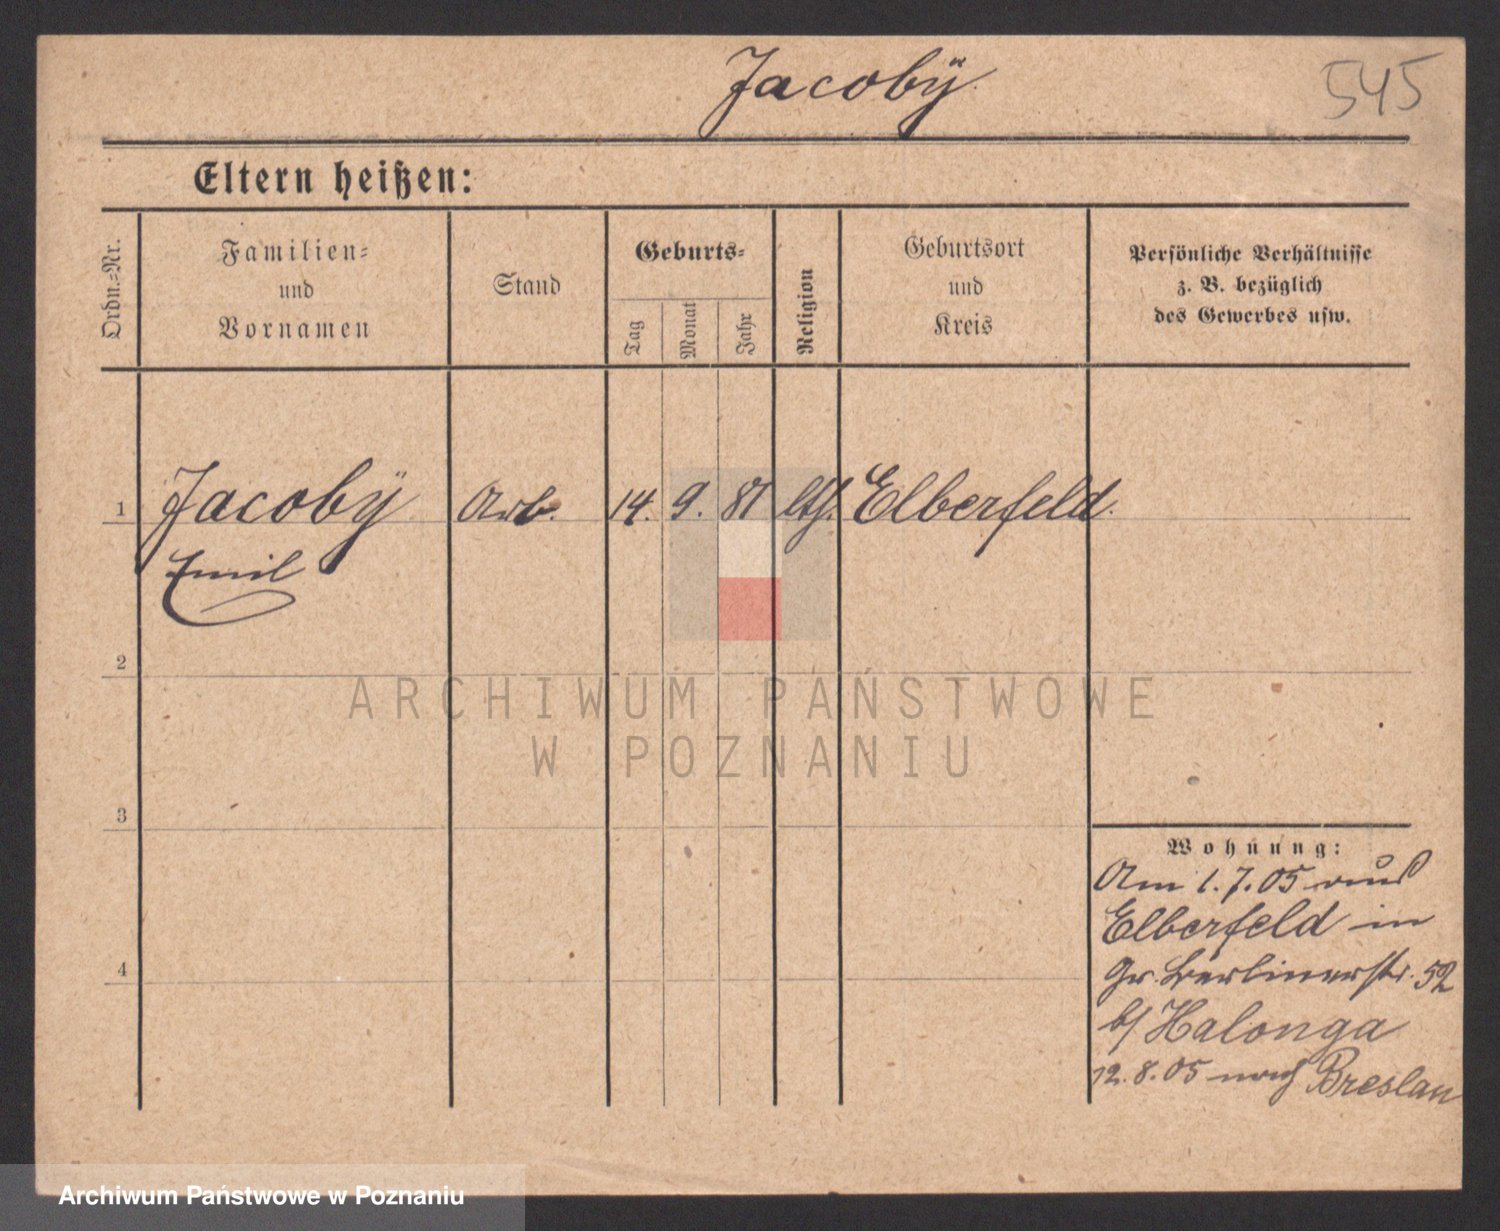 Jacobÿ
545
Eltern heißen:
Ordn.-Nr.
Familien-
und
Vornamen
Stand
Geburts-
Tag
Monat
Jahr
Religion
Geburtsort
und
Kreis
Persönliche Verhältnisse
z. B. bezüglich
des Gewerbes usw.
1 Jacobÿ Arb. 14. 9. 81 Elberfeld.
Emil
2
3
4
Wohnung:
Am 1.7.05 aus
Elberfeld in
Gr. Berlinerstr. 52
b/ Halonga
12.8.05 nach Breslau
ARCHIWUM PAŃSTWOWE
W POZNANIU
Archiwum Państwowe w Poznaniu